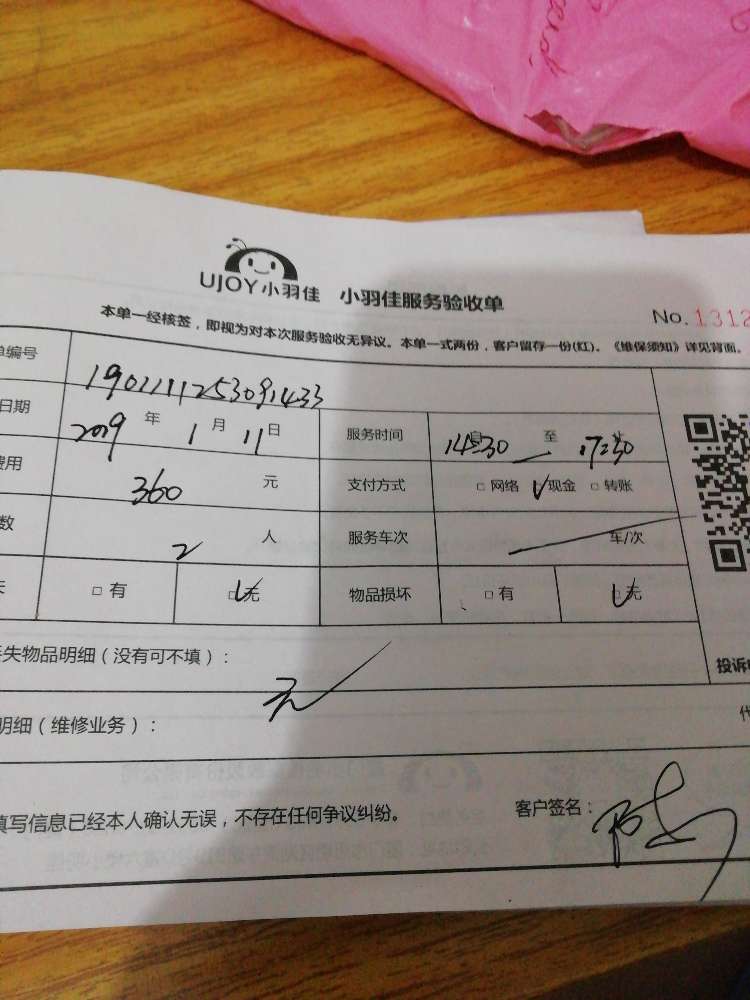 UJOY小羽佳 小羽佳服务验收单
No. 1312
本单一经核签，即视为对本次服务验收无异议。本单一式两份，客户留存一份(红)。《维保须知》详见背面。
单编号 1901111253091433
日期 2019 年 1 月 11 日 服务时间 14:30 至 17:30
费用 360 元 支付方式 □ 网络 □ 现金 □ 转账
数 2 人 服务车次 车/次
□ 有 □ 无 物品损坏 □ 有 □ 无
失物品明细（没有可不填）：
无
明细（维修业务）：
投诉
代
填写信息已经本人确认无误，不存在任何争议纠纷。 客户签名：